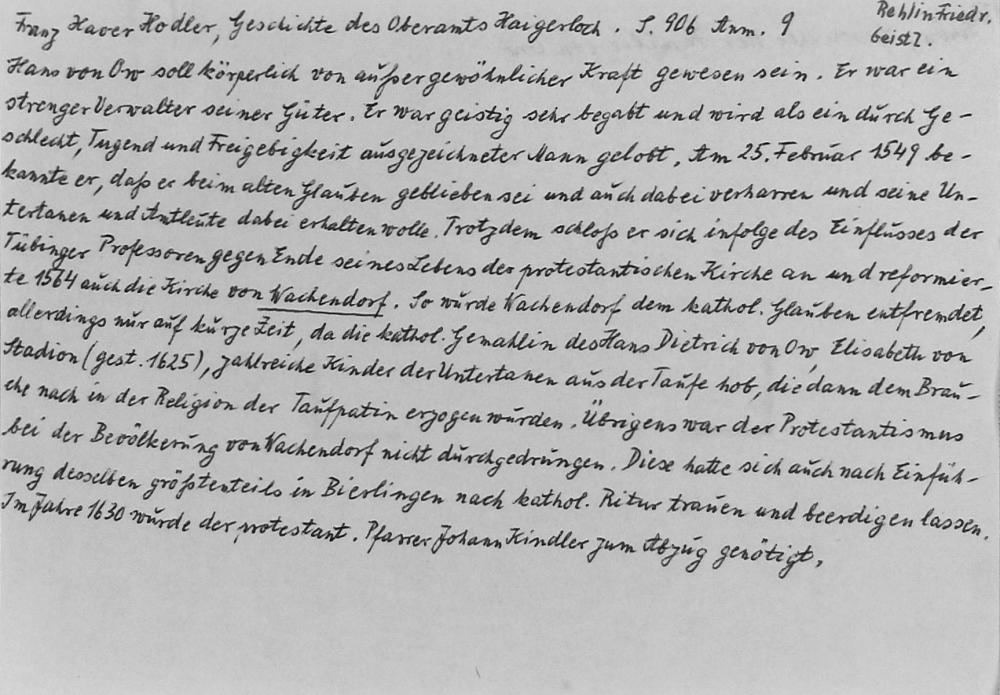 Franz Xaver Hodler, Geschichte des Oberamts Haigerloch. S. 906 Anm. 9
Hans von Ow soll körperlich von außergewöhnlicher Kraft gewesen sein. Er war ein
strenger Verwalter seiner Güter. Er war geistig sehr begabt und wird als ein durch Ge-
schlecht, Tugend und Freigebigkeit ausgezeichneter Mann gelobt. Am 25. Februar 1549 be-
kannte er, daß er beim alten Glauben geblieben sei und auch dabei verharren und seine Un-
tertanen und Amtleute dabei erhalten wolle. Trotzdem schloß er sich infolge des Einflusses der
Tübinger Professoren gegen Ende seines Lebens der protestantischen Kirche an und reformier-
te 1564 auch die Kirche von Wachendorf. So wurde Wachendorf dem kathol. Glauben entfremdet,
allerdings nur auf kurze Zeit, da die kathol. Gemahlin des Hans Dietrich von Ow, Elisabeth von
Stadion (gest. 1625), zahlreiche Kinder der Untertanen aus der Taufe hob, die dann dem Brau-
che nach in der Religion der Taufpatin erzogen wurden. Übrigens war der Protestantismus
bei der Bevölkerung von Wachendorf nicht durchgedrungen. Diese hatte sich auch nach Einfüh-
rung desselben größtenteils in Bierlingen nach kathol. Ritur trauen und beerdigen lassen.
Im Jahre 1630 wurde der protestant. Pfarrer Johann Kindler zum Abzug genötigt.